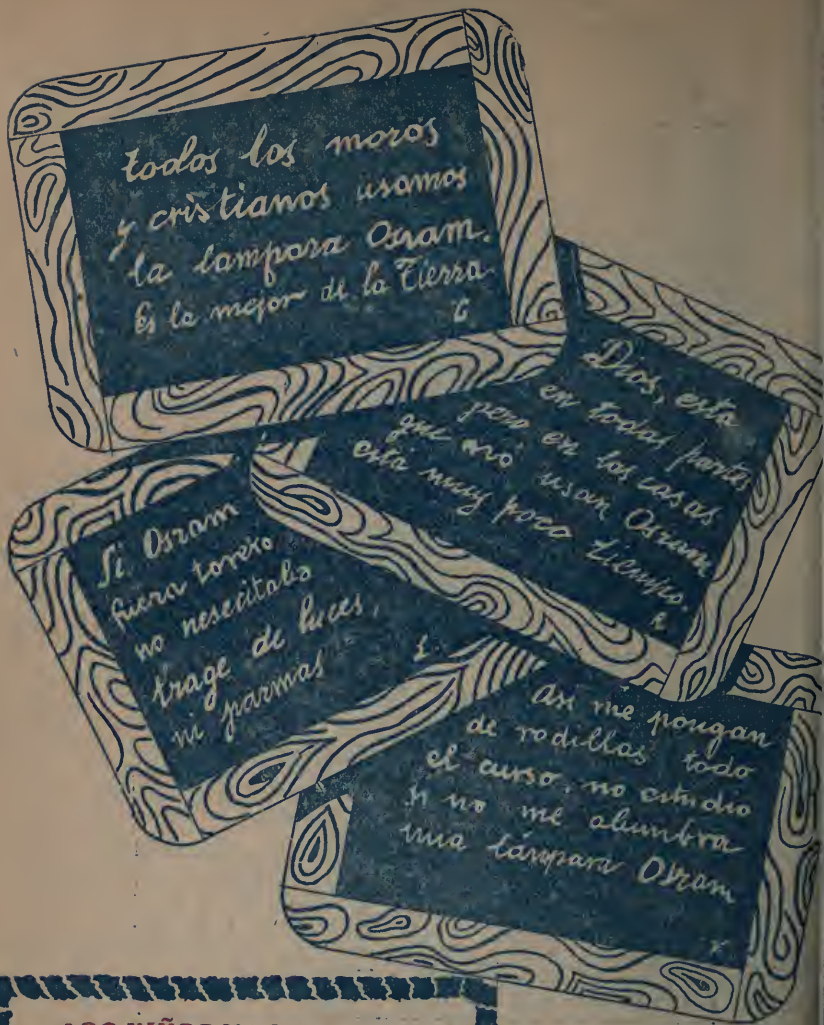 todos los moros
y cristianos usamos
la lampara Osram.
Es la mejor de la Tierra
Dios, esta
en todas partes
pero en las casas
que nó usan Osram
está muy poco tiempo.
Si Osram
fuera torero
no nesecitaba
trage de luces,
ni parmas
Asi me pongan
de rodillas todo
el curso, no estudio
si no me alumbra
una lámpara Osram